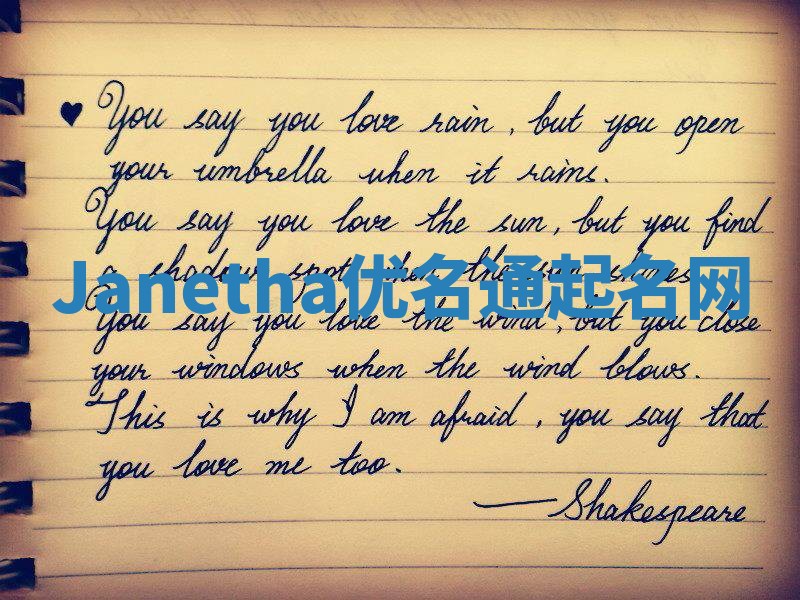 You say you love rain, but you open
your umbrella when it rains.
You say you love the sun, but you find
a shadow spot when the sun shines.
Janetha优名通起名网
You say you love the wind, but you close
your windows when the wind blows.
This is why I am afraid, you say that
you love me too.
— Shakespeare